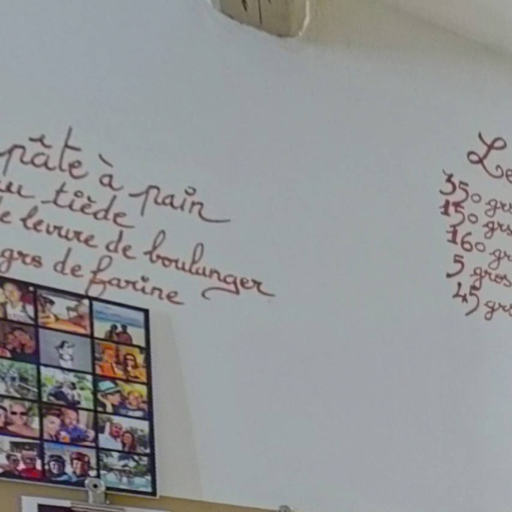 pâte à pain
tiède
levure de boulanger
grs de farine
350 grs
150 grs
160 gr
5 gros
45 grs